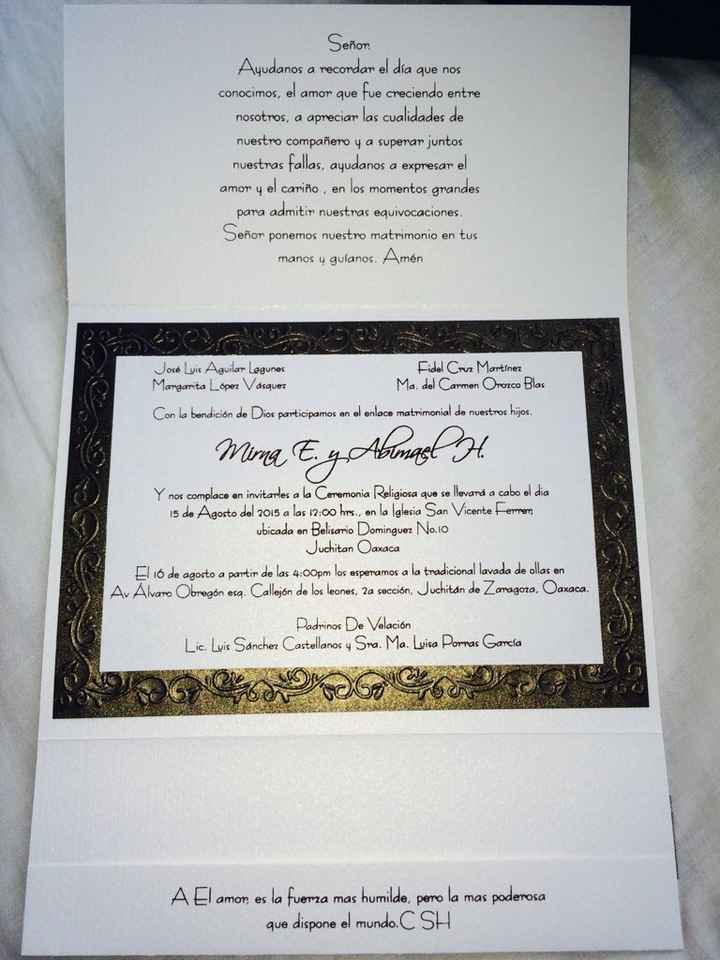 Señor.
Ayudanos a recordar el día que nos
conocimos, el amor que fue creciendo entre
nosotros, a apreciar las cualidades de
nuestro compañero y a superar juntos
nuestras fallas, ayudanos a expresar el
amor y el cariño , en los momentos grandes
para admitir nuestras equivocaciones.
Señor ponemos nuestro matrimonio en tus
manos y guíanos. Amén
José Luis Aguilar Lagunes
Margarita López Vásquez
Fidel Cruz Martínez
Ma. del Carmen Orozco Blas
Con la bendición de Dios participamos en el enlace matrimonial de nuestros hijos.
Mirna E. y Abimael H.
Y nos complace en invitarles a la Ceremonia Religiosa que se llevará a cabo el dia
15 de Agosto del 2015 a las 12:00 hrs., en la Iglesia San Vicente Ferrer,
ubicada en Belisario Dominguez No.10
Juchitan Oaxaca
El 16 de agosto a partir de las 4:00pm los esperamos a la tradicional lavada de ollas en
Av Álvaro Obregón esq. Callejón de los leones, 2a sección, Juchitán de Zaragoza, Oaxaca.
Padrinos De Velación
Lic. Luis Sánchez Castellanos y Sra. Ma. Luisa Porras García
A El amor, es la fuerza mas humilde, pero la mas poderosa
que dispone el mundo.C SH